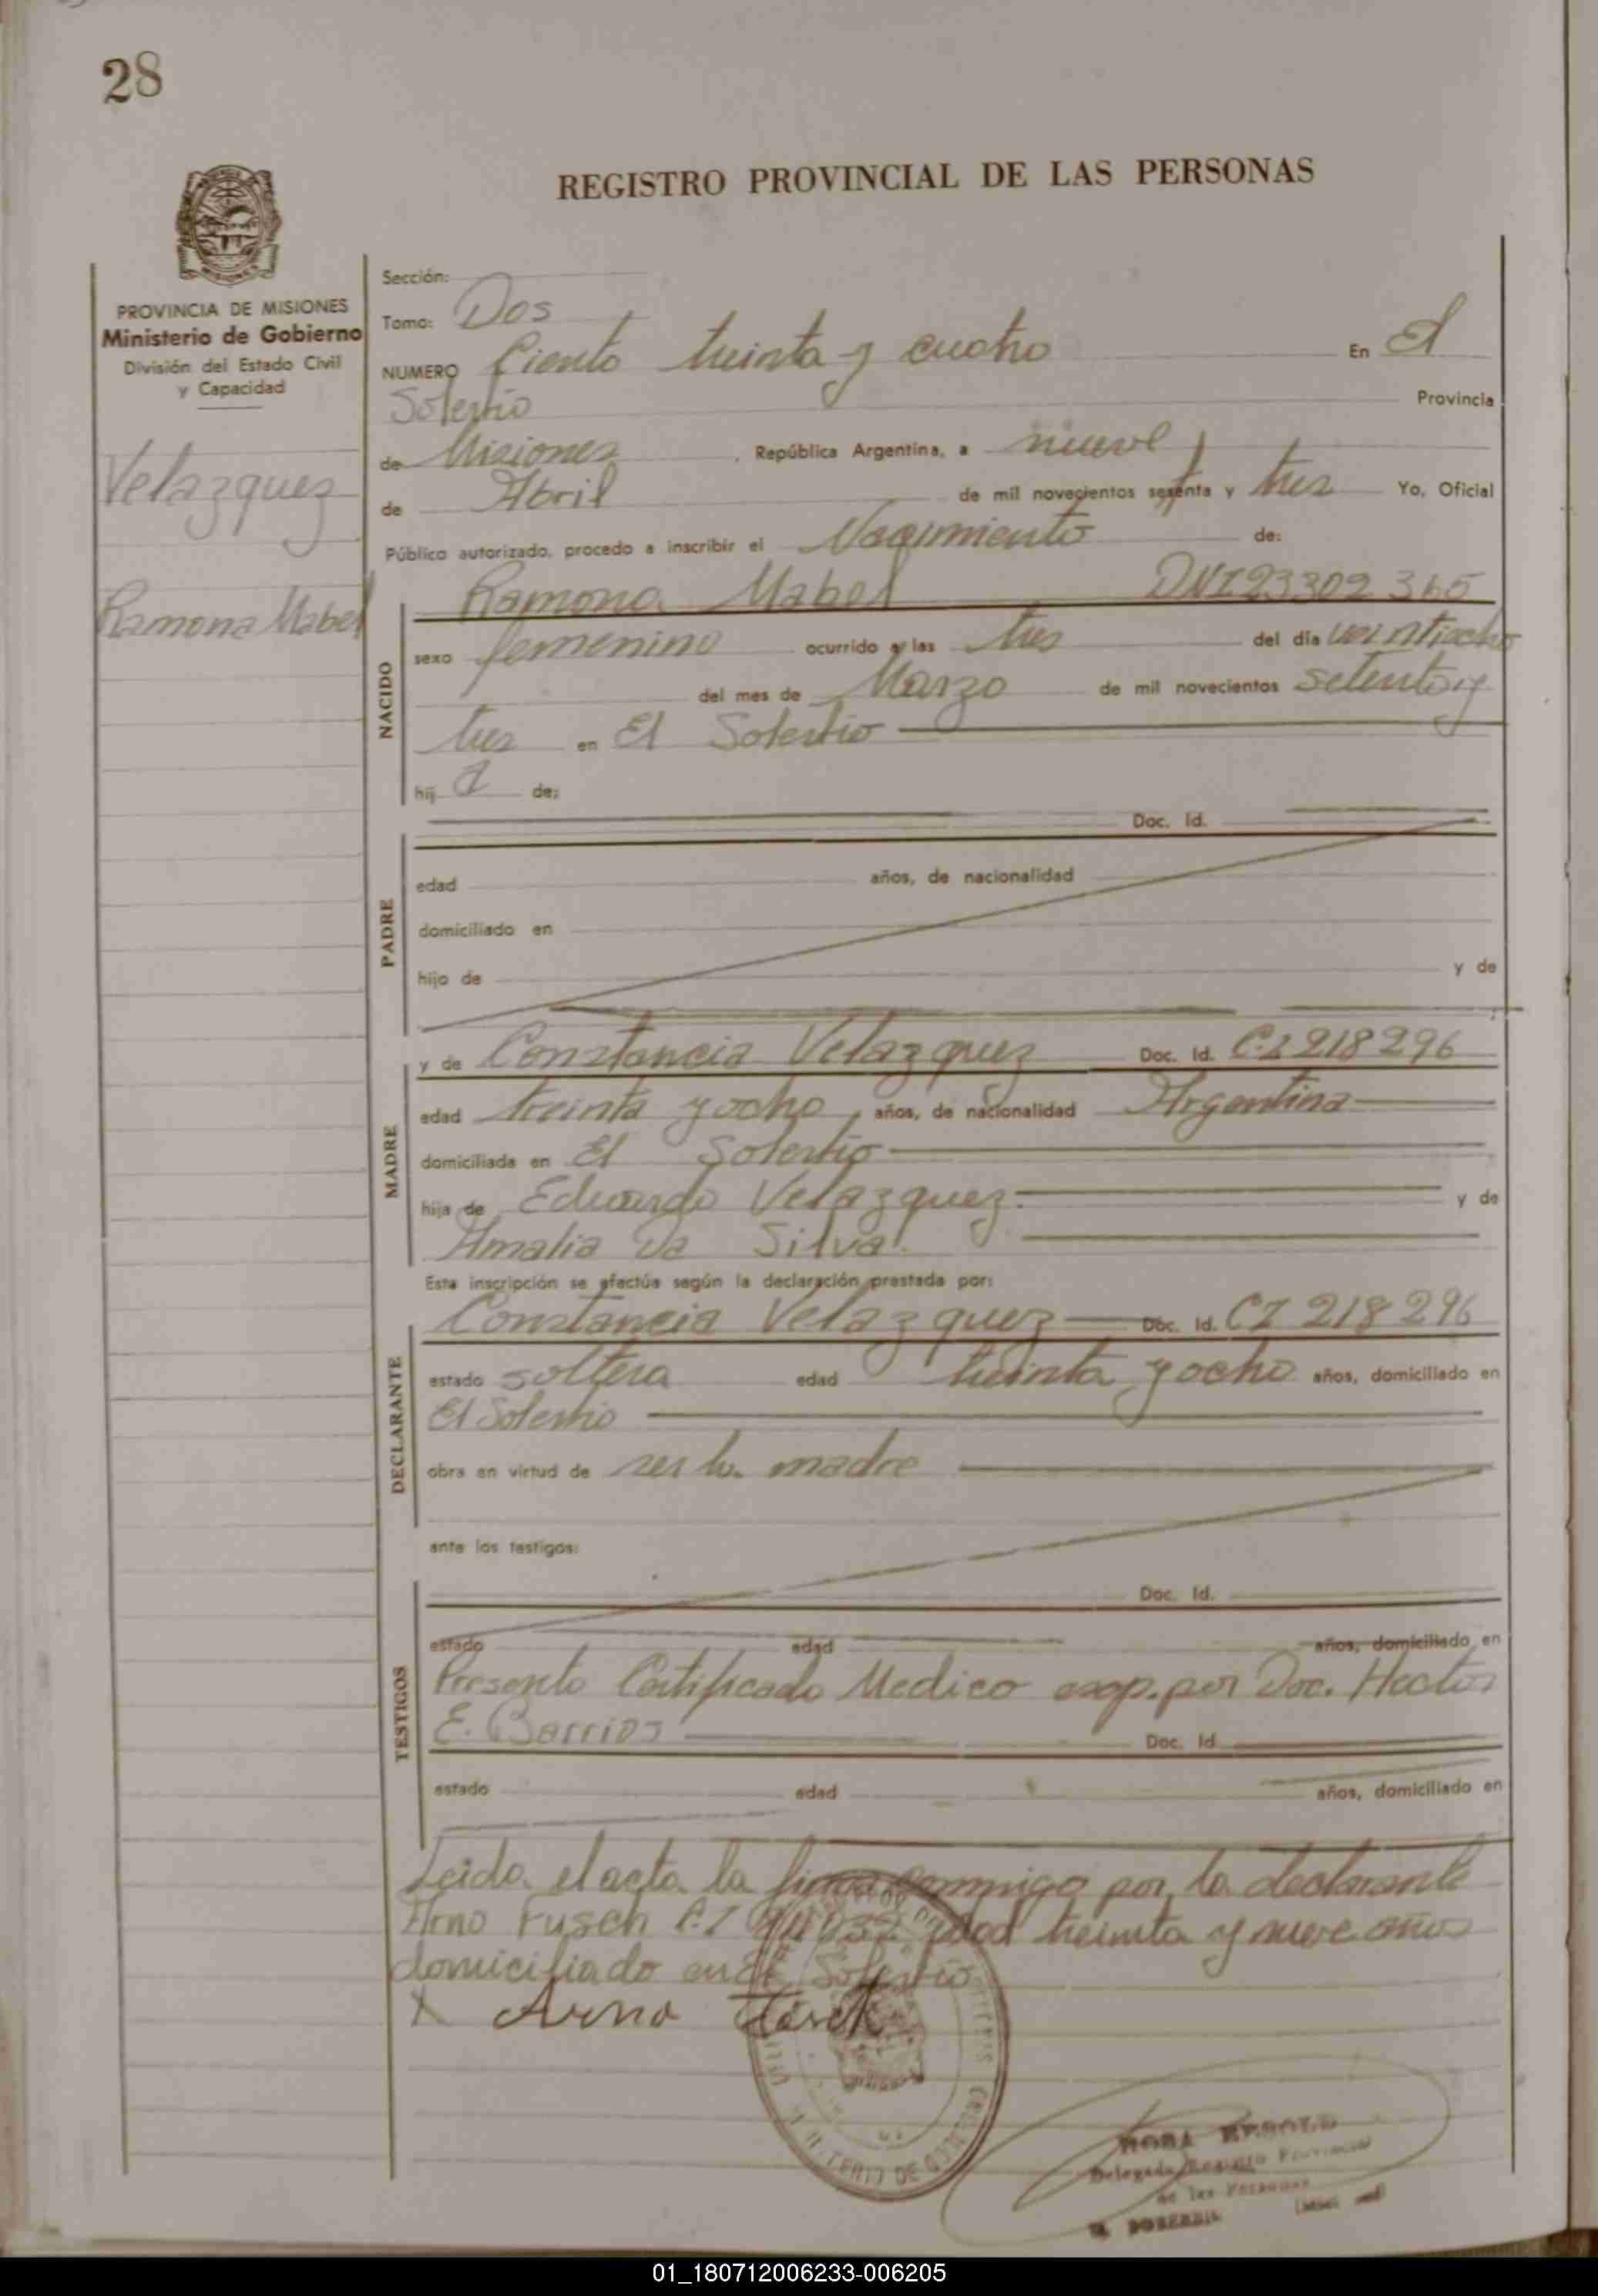 28
REGISTRO PROVINCIAL DE LAS PERSONAS
MISIONES
PROVINCIA DE MISIONES
Ministerio de Gobierno
División del Estado Civil
y Capacidad
Velazquez
Ramona Mabel
Sección:
Tomo: Dos
NUMERO Ciento treinta y cuatro En El
Soberbio Provincia
de Misiones, República Argentina, a nueve
de Abril de mil novecientos setenta y tres Yo, Oficial
Público autorizado, procedo a inscribir el Nacimiento de:
NACIDO
Ramona Mabel DNI 23302 365
sexo femenino ocurrido a las tres del día veintiocho
del mes de Marzo de mil novecientos setenta y
tres en El Soberbio
hij a de:
PADRE
Doc. Id.
edad años, de nacionalidad
domiciliado en
hijo de y de
MADRE
y de Constancia Velazquez Doc. Id. C.I 218296
edad treinta y ocho, años, de nacionalidad Argentina
domiciliada en El Soberbio
hija de Eduardo Velazquez y de
Amalia Da Silva.
Esta inscripción se efectúa según la declaración prestada por:
DECLARANTE
Constancia Velazquez Doc. Id. CI 218296
estado soltera edad treinta y ocho años, domiciliado en
El Soberbio
obra en virtud de ser la madre
ante los testigos:
TESTIGOS
Doc. Id.
estado edad años, domiciliado en
Presento Certificado Medico exp. por Doc. Hector
E. Barrios Doc. Id.
estado edad años, domiciliado en
Leida el acta la firma conmigo por la declarante
Arno Fusch C.I edad treinta y nueve años
domiciliado en El Soberbio
X Arno
Delegada Registro Provincial
de las Personas
EL SOBERBIO
01_180712006233-006205